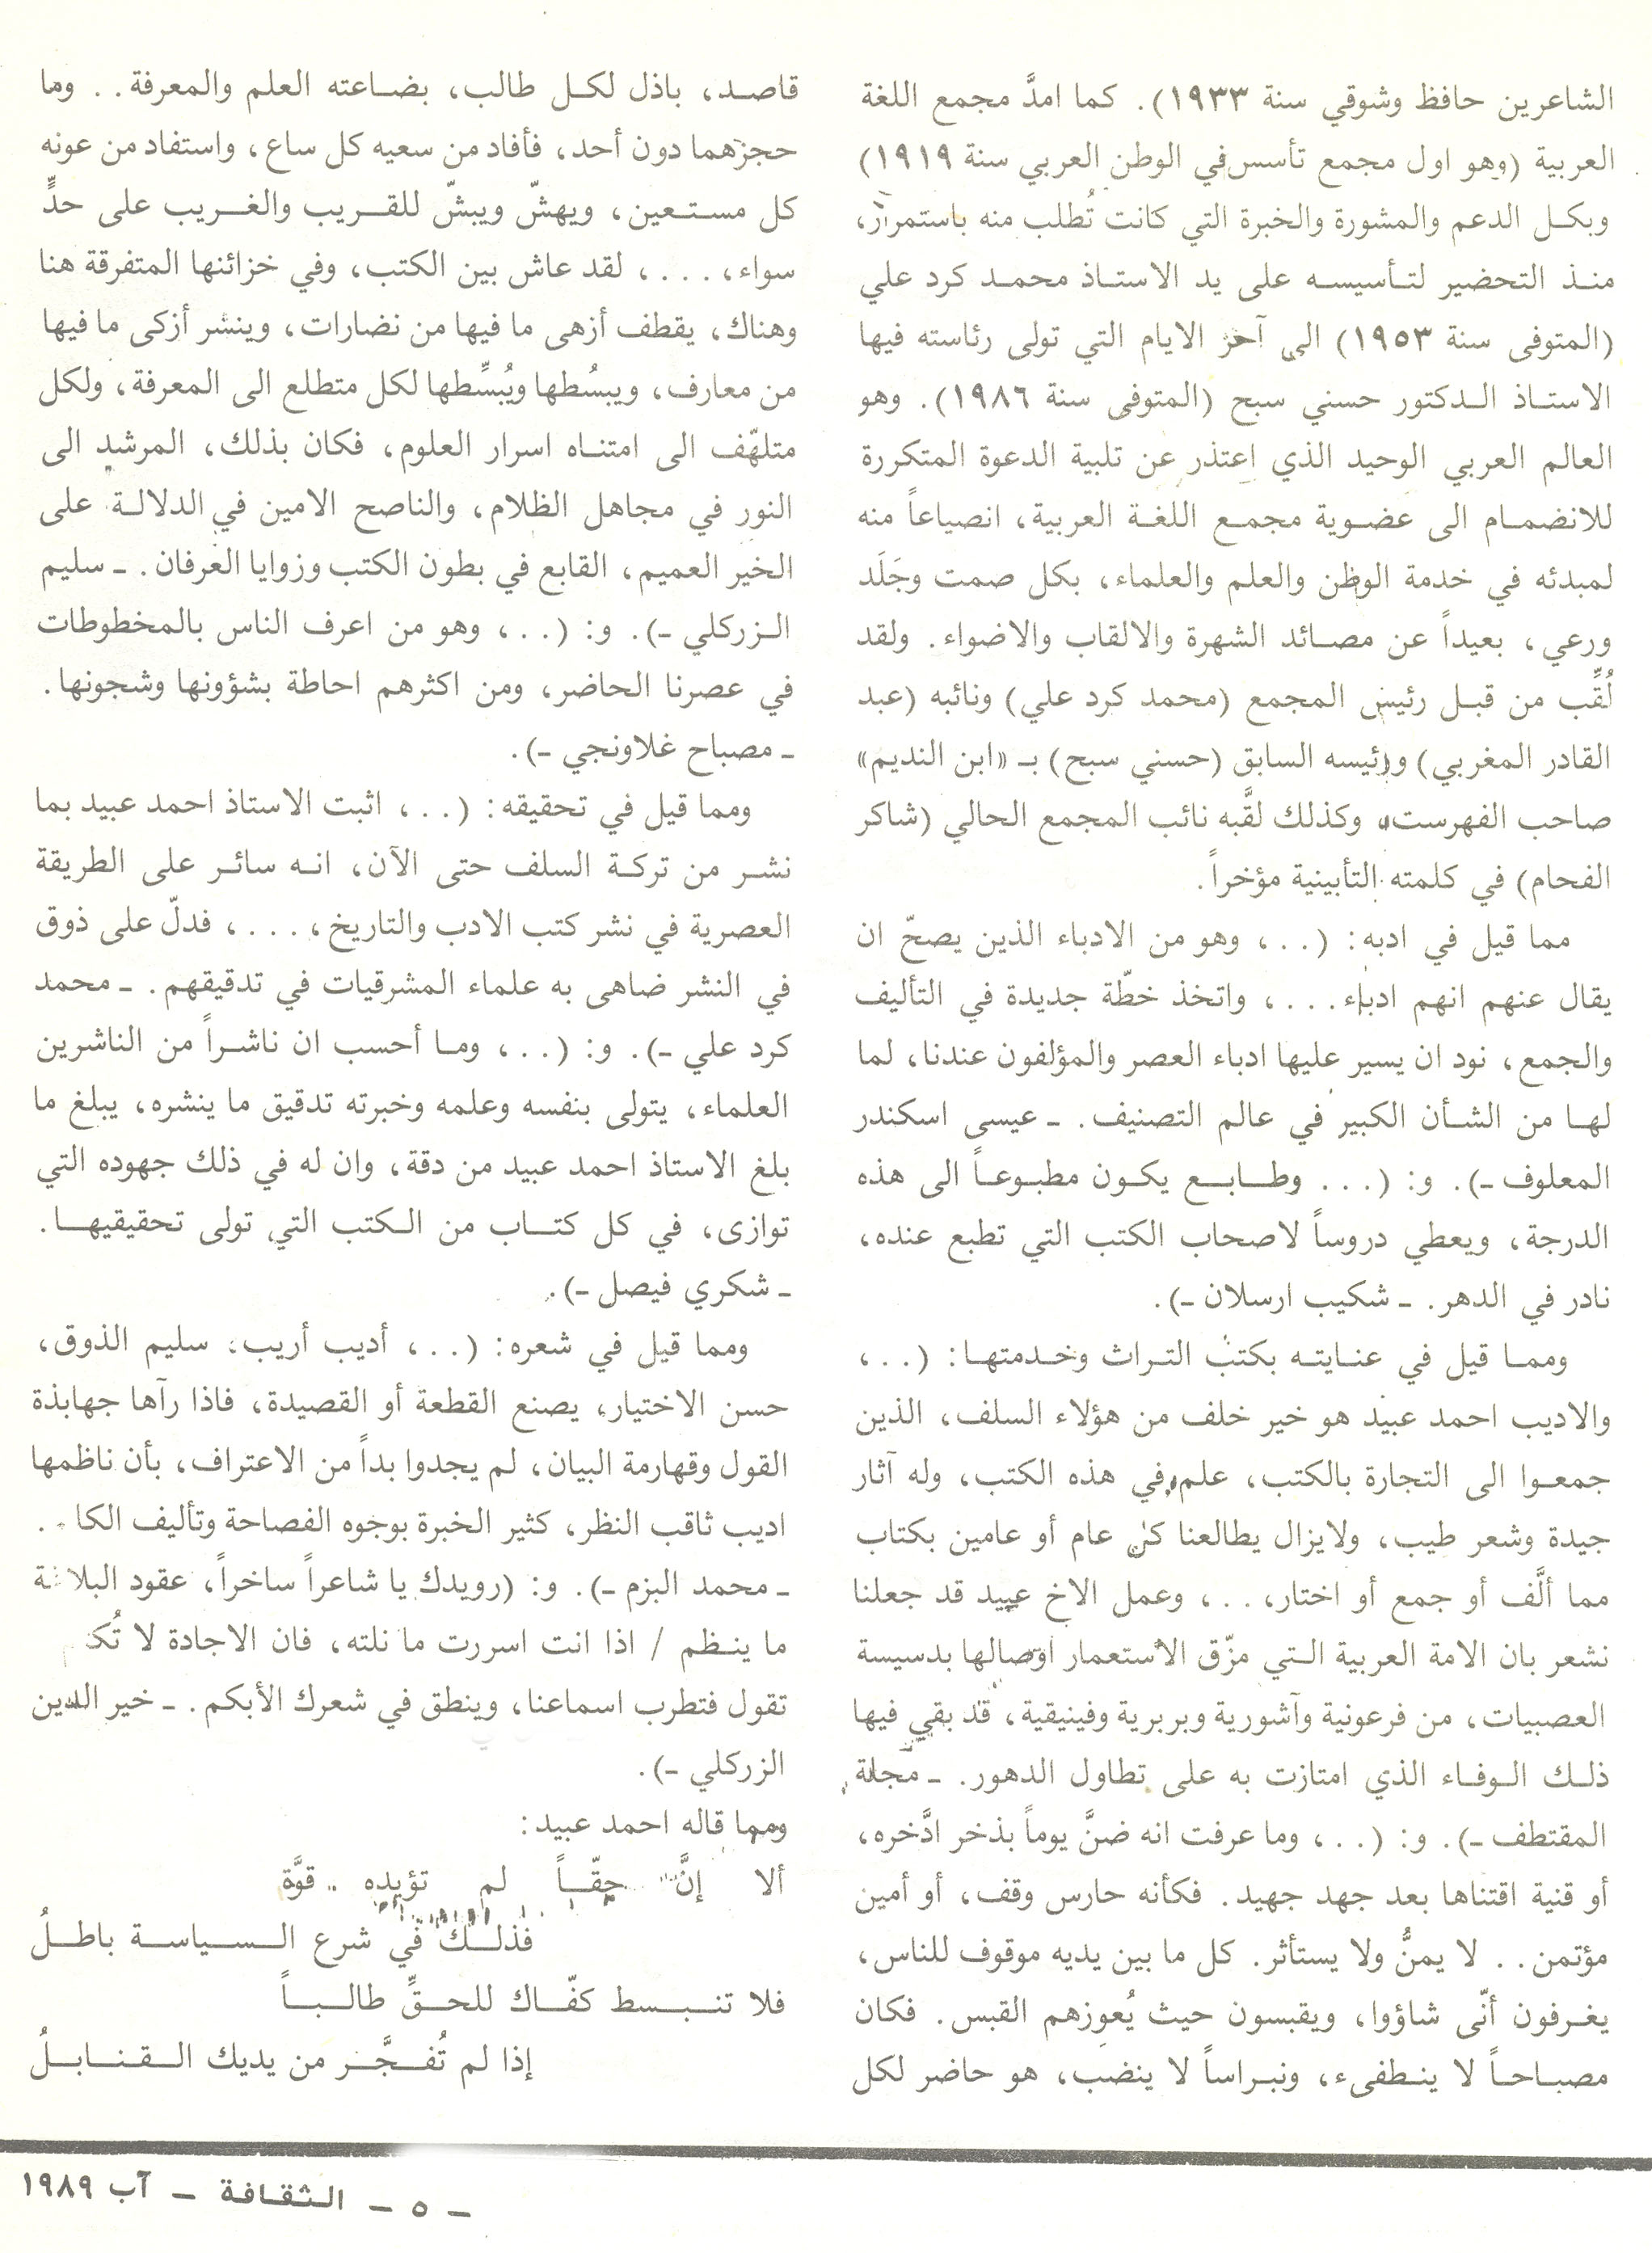 الشاعرين حافظ وشوقي سنة ١٩٣٣). كما امدَّ مجمع اللغة
العربية (وهو اول مجمع تأسس في الوطن العربي سنة ١٩١٩)
وبكل الدعم والمشورة والخبرة التي كانت تُطلب منه باستمرار،
منذ التحضير لتأسيسه على يد الاستاذ محمد كرد علي
(المتوفى سنة ١٩٥٣) الى آخر الايام التي تولى رئاسته فيها
الاستاذ الدكتور حسني سبح (المتوفى سنة ١٩٨٦). وهو
العالم العربي الوحيد الذي اعتذر عن تلبية الدعوة المتكررة
للانضمام الى عضوية مجمع اللغة العربية، انصياعاً منه
لمبدئه في خدمة الوطن والعلم والعلماء، بكل صمت وجَلَد
ورعي، بعيداً عن مصائد الشهرة والالقاب والاضواء. ولقد
لُقِّب من قبل رئيس المجمع (محمد كرد علي) ونائبه (عبد
القادر المغربي) ورئيسه السابق (حسني سبح) بـ «ابن النديم»
صاحب الفهرست، وكذلك لقَّبه نائب المجمع الحالي (شاكر
الفحام) في كلمته التأبينية مؤخراً.
مما قيل في ادبه: (..، وهو من الادباء الذين يصحّ ان
يقال عنهم انهم ادباء...، واتخذ خطّة جديدة في التأليف
والجمع، نود ان يسير عليها ادباء العصر والمؤلفون عندنا، لما
لها من الشأن الكبير في عالم التصنيف. ـ عيسى اسكندر
المعلوف ـ). و: (... وطابع يكون مطبوعاً الى هذه
الدرجة، ويعطي دروساً لاصحاب الكتب التي تطبع عنده،
نادر في الدهر. ـ شكيب ارسلان ـ).
ومما قيل في عنايته بكتب التراث وخدمتها: (..،
والاديب احمد عبيد هو خير خلف من هؤلاء السلف، الذين
جمعوا الى التجارة بالكتب، علم في هذه الكتب، وله آثار
جيدة وشعر طيب، ولايزال يطالعنا كل عام أو عامين بكتاب
مما ألَّف أو جمع أو اختار، ..، وعمل الاخ عبيد قد جعلنا
نشعر بان الامة العربية التي مزّق الاستعمار اوصالها بدسيسة
العصبيات، من فرعونية وآشورية وبربرية وفينيقية، قد بقي فيها
ذلك الوفاء الذي امتازت به على تطاول الدهور. ـ مجلة
المقتطف ـ). و: (..، وما عرفت انه ضنَّ يوماً بذخر ادَّخره،
أو قنية اقتناها بعد جهد جهيد. فكأنه حارس وقف، أو أمين
مؤتمن.. لا يمنُّ ولا يستأثر. كل ما بين يديه موقوف للناس،
يغرفون أنّى شاؤوا، ويقبسون حيث يُعوزهم القبس. فكان
مصباحاً لا ينطفىء، ونبراساً لا ينضب، هو حاضر لكل
قاصد، باذل لكل طالب، بضاعته العلم والمعرفة.. وما
حجزهما دون أحد، فأفاد من سعيه كل ساع، واستفاد من عونه
كل مستعين، ويهشّ ويبشّ للقريب والغريب على حدٍّ
سواء، ...، لقد عاش بين الكتب، وفي خزائنها المتفرقة هنا
وهناك، يقطف أزهى ما فيها من نضارات، وينشر أزكى ما فيها
من معارف، ويبسُطها ويُبسِّطها لكل متطلع الى المعرفة، ولكل
متلهّف الى امتناه اسرار العلوم، فكان بذلك، المرشد الى
النور في مجاهل الظلام، والناصح الامين في الدلالة على
الخير العميم، القابع في بطون الكتب وزوايا العرفان. ـ سليم
الزركلي ـ). و: (..، وهو من اعرف الناس بالمخطوطات
في عصرنا الحاضر، ومن اكثرهم احاطة بشؤونها وشجونها.
ـ مصباح غلاونجي ـ).
ومما قيل في تحقيقه: (..، اثبت الاستاذ احمد عبيد بما
نشر من تركة السلف حتى الآن، انه سائر على الطريقة
العصرية في نشر كتب الادب والتاريخ، ...، فدلّ على ذوق
في النشر ضاهى به علماء المشرقيات في تدقيقهم. ـ محمد
كرد علي ـ). و: (..، وما أحسب ان ناشراً من الناشرين
العلماء، يتولى بنفسه وعلمه وخبرته تدقيق ما ينشره، يبلغ ما
بلغ الاستاذ احمد عبيد من دقة، وان له في ذلك جهوده التي
توازى، في كل كتاب من الكتب التي تولى تحقيقيها.
ـ شكري فيصل ـ).
ومما قيل في شعره: (..، أديب أريب، سليم الذوق،
حسن الاختيار، يصنع القطعة أو القصيدة، فاذا رآها جهابذة
القول وقهارمة البيان، لم يجدوا بداً من الاعتراف، بأن ناظمها
اديب ثاقب النظر، كثير الخبرة بوجوه الفصاحة وتأليف
ـ محمد البزم ـ). و: (رويدك يا شاعراً ساخراً، عقود البلاغة
ما ينظم / اذا انت اسررت ما نلته، فان الاجادة لا
تقول فتطرب اسماعنا، وينطق في شعرك الأبكم. ـ خير الدين
الزركلي ـ).
ومما قاله احمد عبيد:
ألا إنَّ حقّاً لم تؤيده قوَّة
فذلك في شرع السياسة باطلُ
فلا تنبسط كفّاك للحقِّ طالباً
إذا لم تُفجَّر من يديك القنابلُ
ـ ٥ ـ الثقافة ـ آب ١٩٨٩